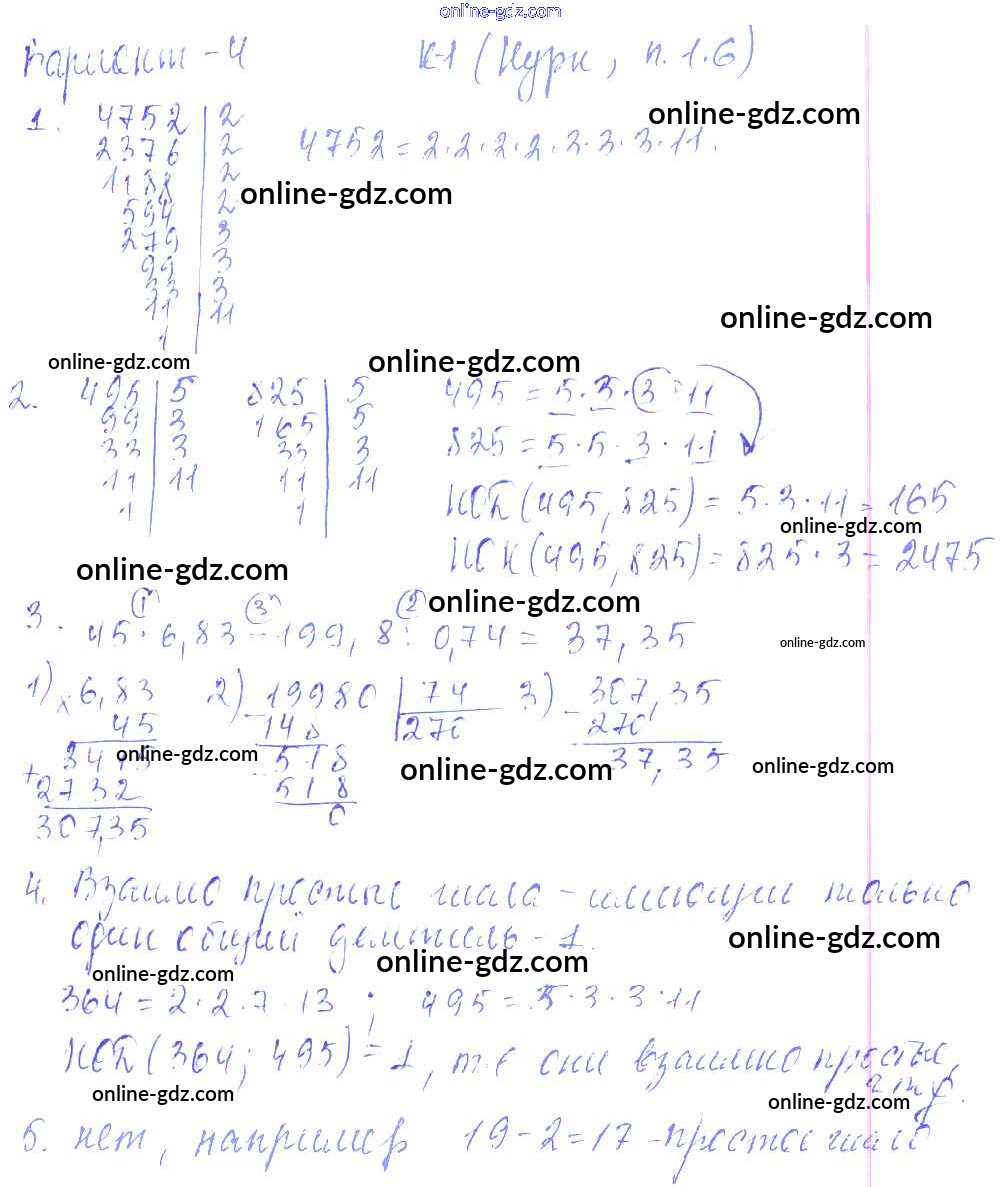 online-gdz.com
Вариант - 4 К-1 (Нурк, п. 1.6)
online-gdz.com
1. 4752 | 2 4752 = 2·2·2·2·3·3·3·11.
2376 | 2
1188 | 2
online-gdz.com
594 | 2
279 | 3
99 | 3
33 | 3
11 | 11
1
online-gdz.com
online-gdz.com online-gdz.com
2. 495 | 5 825 | 5 495 = 5·3·3·11
99 | 3 165 | 5 825 = 5·5·3·11
33 | 3 33 | 3
11 | 11 11 | 11 НОД(495, 825) = 5·3·11 = 165
1 1
online-gdz.com
НОК(495, 825) = 825·3 = 2475
online-gdz.com
1 3 2
online-gdz.com
3. 45·6,83 - 199,8 : 0,74 = 37,35
online-gdz.com
1) × 6,83 2) 19980 | 74 3) - 307,35
45 - 148 270 270
3415 - 518 37,35
online-gdz.com online-gdz.com online-gdz.com
+ 2732 518
307,35 0
4. Взаимо простые числа - имеющии только
один общий делитель - 1.
online-gdz.com
online-gdz.com online-gdz.com
364 = 2·2·7·13 ; 495 = 5·3·3·11
НОД(364; 495) = 1, т.е они взаимно просты,
ч.т.д.
online-gdz.com online-gdz.com
5. нет, например 19 - 2 = 17 - простое число